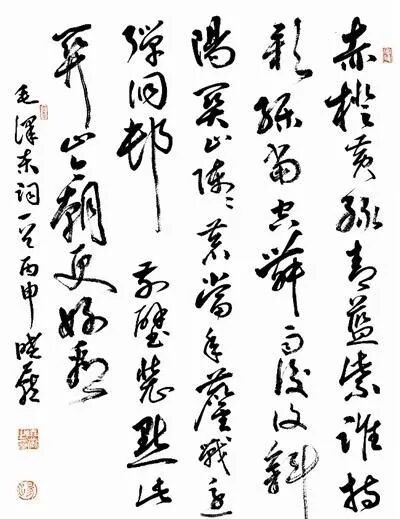 赤橙黃綠青藍紫誰持
彩練當空舞雨後復斜
陽關山陣々蒼當年鏖戰急
彈洞邨前壁裝點此
關山今朝更好看
毛澤東詞一首丙申曉